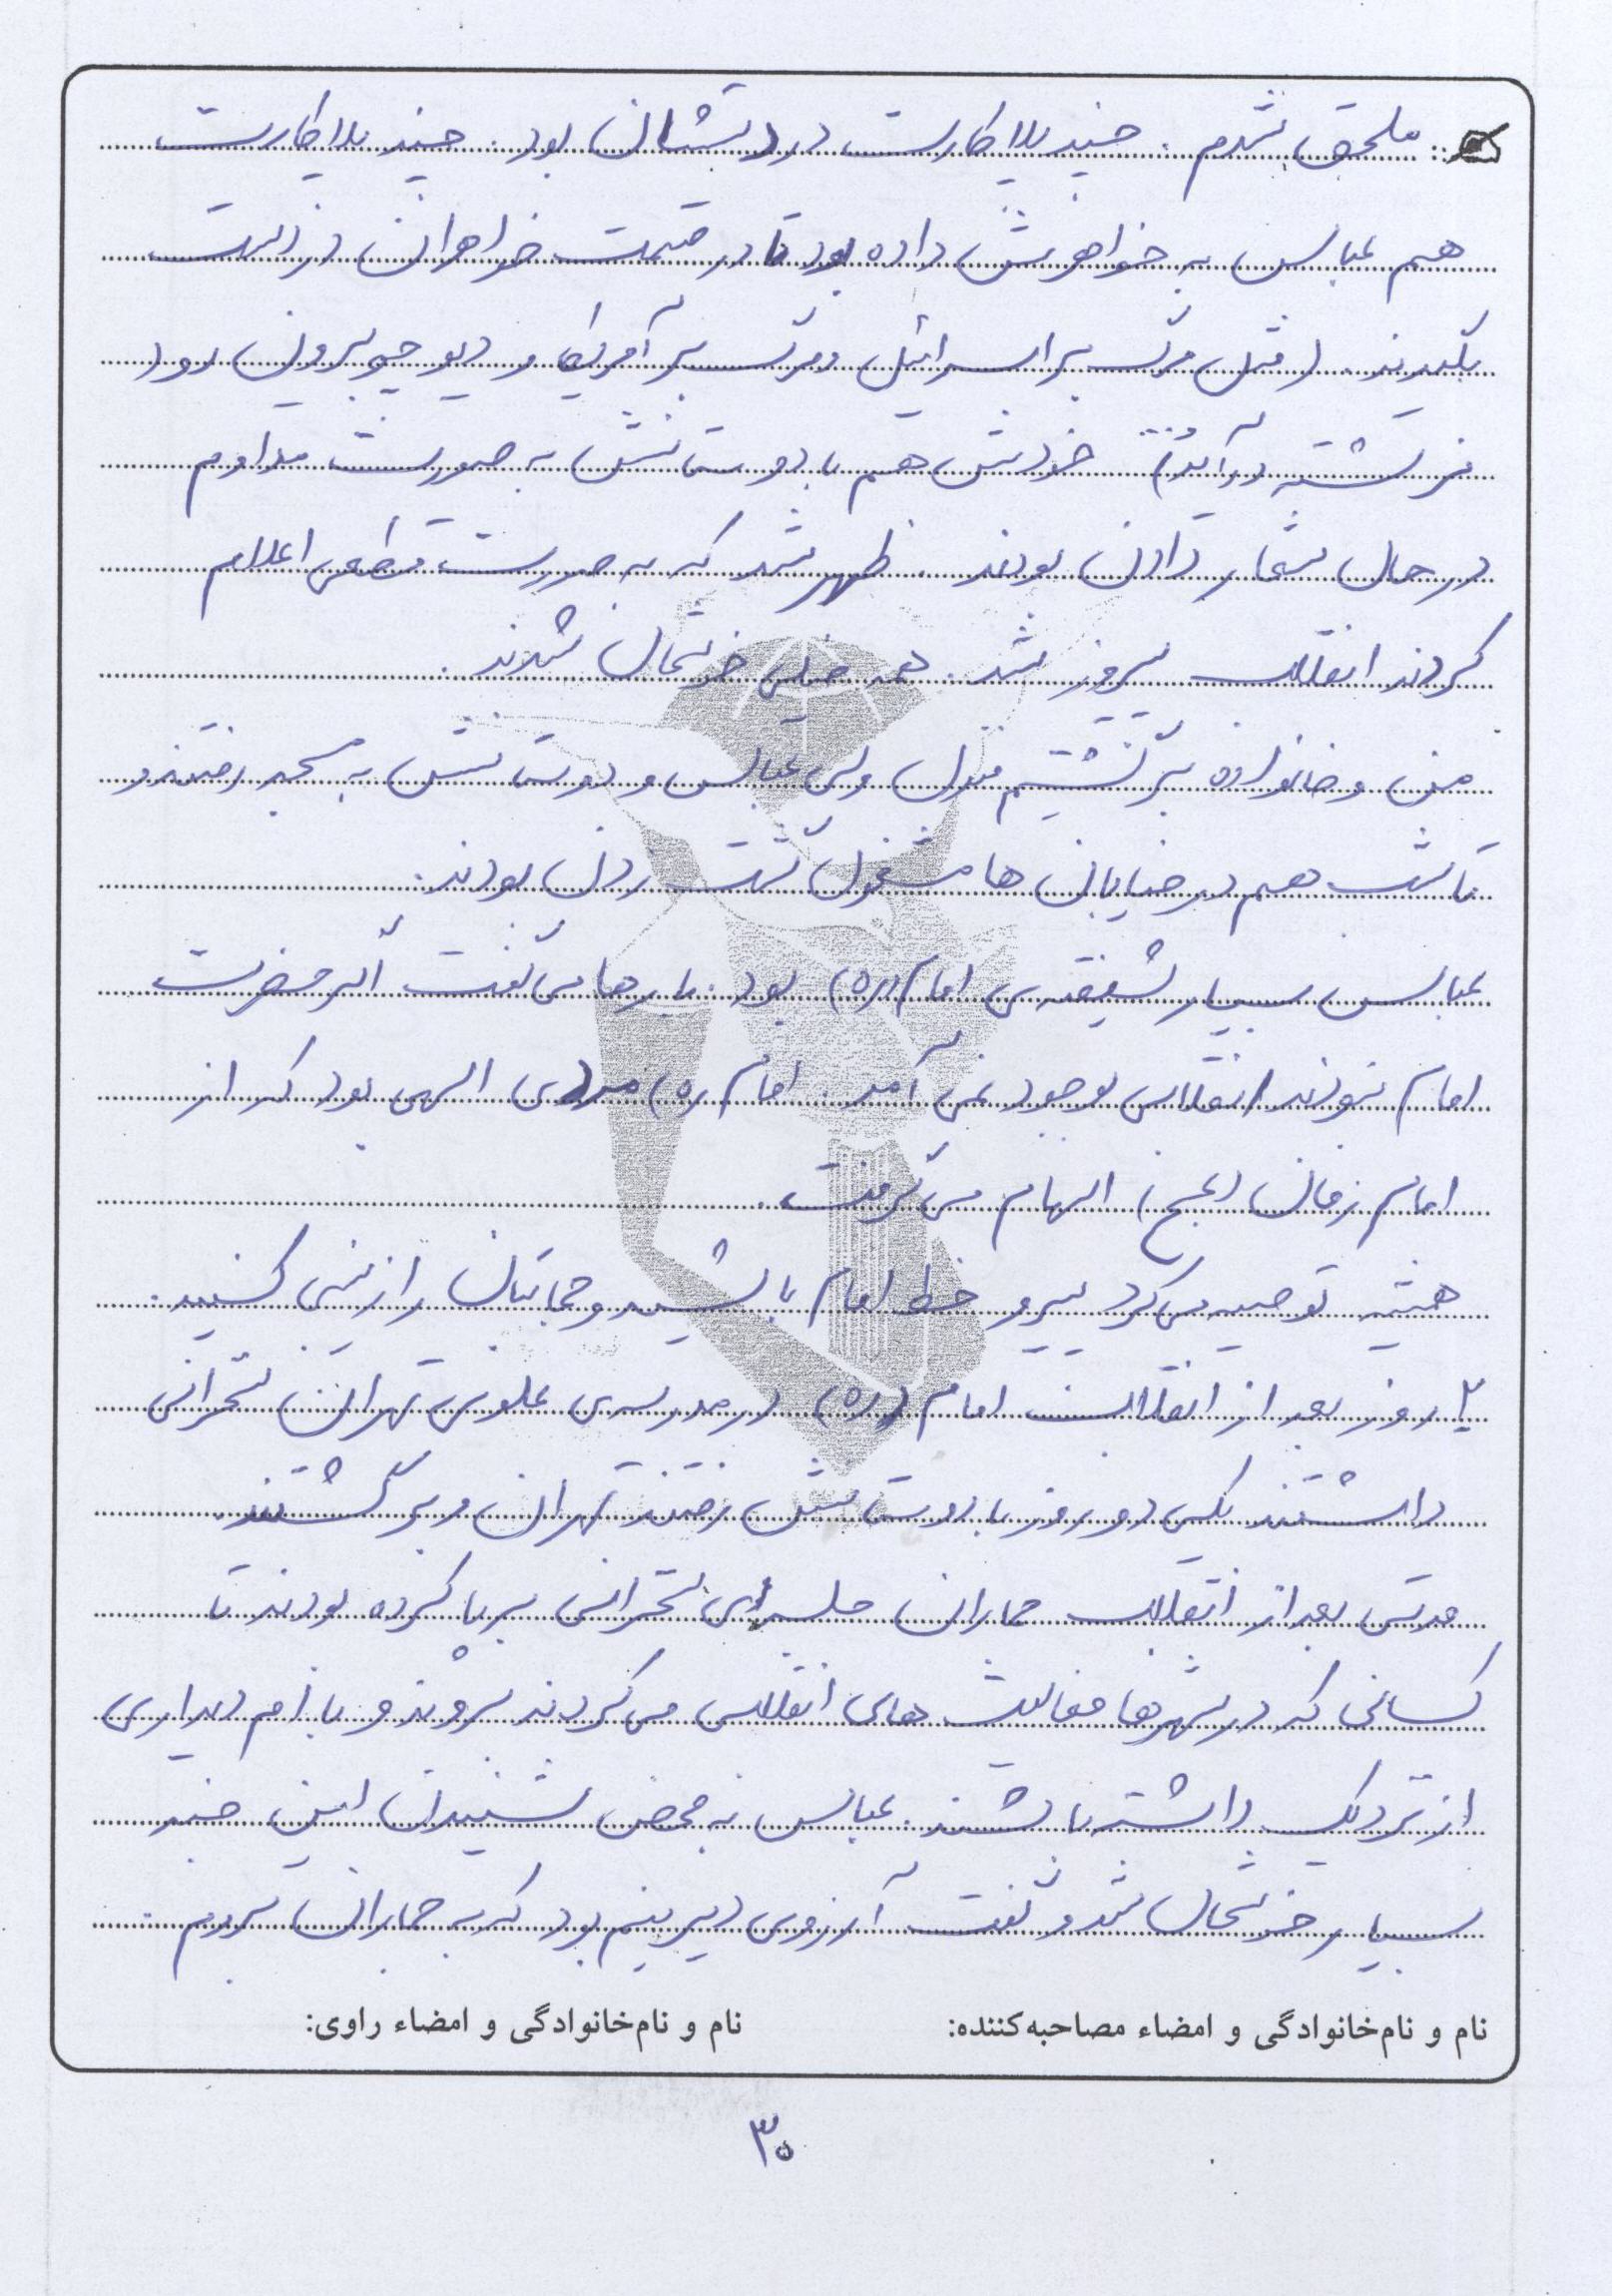 ملحق شدم. چند پلاکارت در دستشان بود. چند پلاکارت
هم عباس به خواهرش داده بود تا در قسمت خواهران در دست
بگیرند. (مثل مرگ بر اسرائیل و مرگ بر آمریکا و دیو چو بیرون رود
فرشته درآید) و... خودش هم با دوستانش به صورت مداوم
در حال شعار دادن بودند. ظهر شد که به صورت قطعی اعلام
کردند انقلاب پیروز شد. همه خیلی خوشحال شدند.
من و خانواده برگشتیم منزل ولی عباس و دوستانش به مسجد رفتند و
تا شب هم در خیابان ها مشغول گشت زدن بودند.
عباس بسیار شیفته ی امام (ره) بود. بارها می گفت اگر حضرت
امام نبودند انقلابی بوجود نمی آمد. امام (ره) مردی الهی بود که از
امام زمان (عج) الهام می گرفت.
همیشه توصیه می کرد پیرو خط امام باشید و حجابتان را زینبی کنید.
۲ روز بعد از انقلاب امام (ره) در مدرسه ی علوی تهران سخرانی
داشتند یکی دو روز با دوستانش رفتند تهران و برگشتند.
مدتی بعد از انقلاب جماران جلسه ای سخرانی برپا کرده بودند تا
کسانی که در شهرها فعالیت های انقلابی می کردند بروند و با امام دیداری
از نزدیک داشته باشند. عباس به محض شنیدن این خبر
بسیار خوشحال شد و گفت آرزوی دیرینم بود که به جماران بروم.
نام و نام‌خانوادگی و امضاء مصاحبه‌کننده: نام و نام‌خانوادگی و امضاء راوی:
۳۰